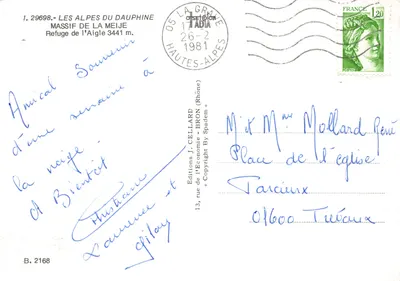 1. 29698. - LES ALPES DU DAUPHINE
MASSIF DE LA MEIJE
Refuge de l'Aigle 3441 m.
05 LA GRAVE
26-2
1981
HAUTES-ALPES
FRANCE
1,20
Amical Souvenir
d'une semaine à
la neige.
A Bientôt
Christiane
Laurence et
Editions J. CELLARD
13, rue de l'Economie - BRON (Rhône)
Copyright By Spadem
M et Mme Mollard René
Place de l'église
Parcieux
01600 Trévoux
B. 2168